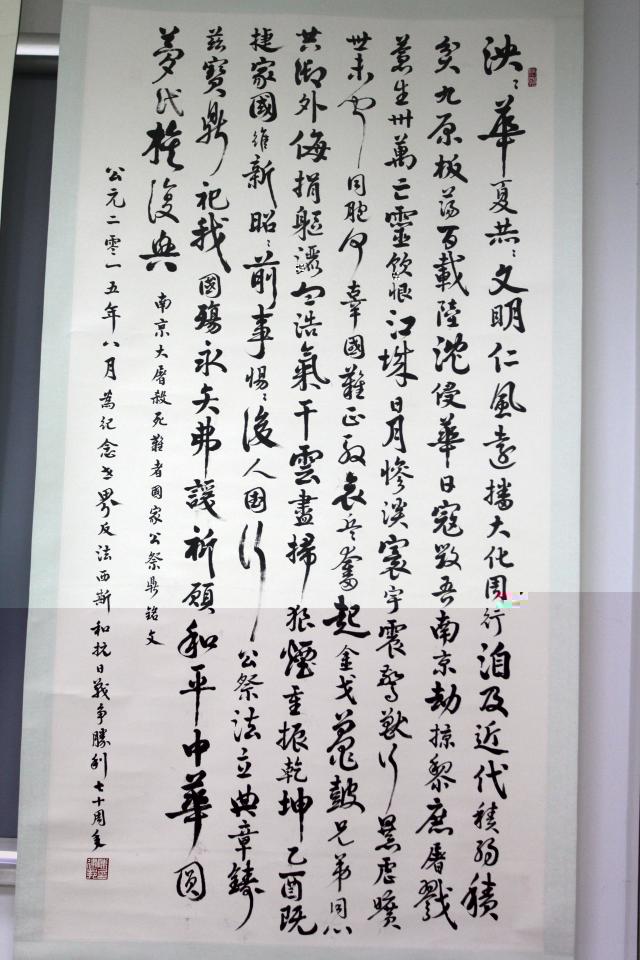 泱々華夏赫々文明仁風遠播大化周行洎及近代積弱積
貧九原板蕩百載陸沈侵華日寇毀吾南京劫掠黎庶屠戮
蒼生卅萬亡靈飲恨江城日月慘淡寰宇震驚獸行暴虐曠
世未聞同胞何辜國難正殷哀兵奮起金戈鼉鼓兄弟同心
共御外侮捐軀灑血浩氣干雲盡掃狼煙重振乾坤乙酉既
捷家國維新昭々前事惕々後人國行公祭法立典章鑄
茲寶鼎祀我國殤永矢弗諼祈願和平中華圓
夢民族復興
南京大屠殺死難者國家公祭鼎銘文
公元二零一五年八月為紀念世界反法西斯和抗日戰爭勝利七十周年